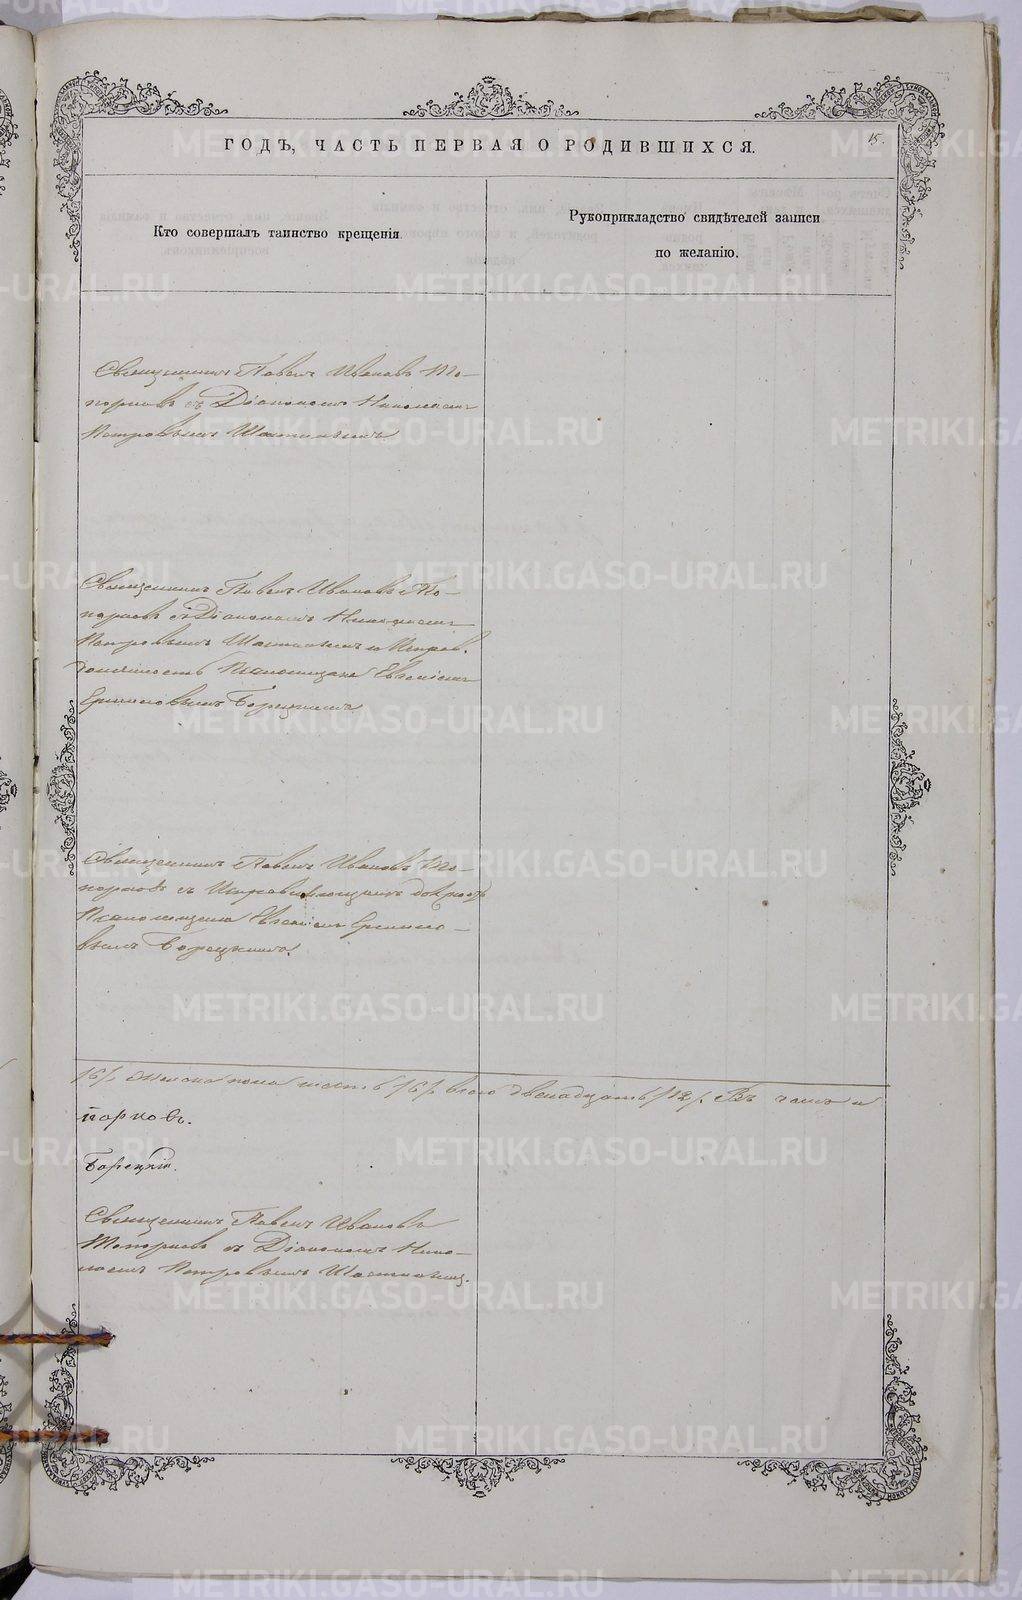 15.
ГОДЪ, ЧАСТЬ ПЕРВАЯ О РОДИВШИХСЯ.
Кто совершалъ таинство крещенія.
Рукоприкладство свидѣтелей записи
по желанію.
Священникъ Павелъ Ивановъ То-
порковъ съ Діакономъ Николаемъ
Петровымъ
Священникъ Павелъ Ивановъ То-
порковъ съ Діакономъ Николаемъ
Петровымъ и Исправ.
должность Псаломщика Евгеніемъ
Ермиловымъ Борецкимъ
Священникъ Павелъ Ивановъ То-
порковъ съ Исправляющимъ должность
Псаломщика Евгеніемъ Ермило-
вымъ Борецкимъ.
/6/. женска пола шесть /6/. всего двенадцать /12/. Въ чемъ и
порковъ.
Борецкій.
Священникъ Павелъ Ивановъ
Топорковъ съ Діакономъ Нико-
лаемъ Петровымъ
METRIKI.GASO-URAL.RU